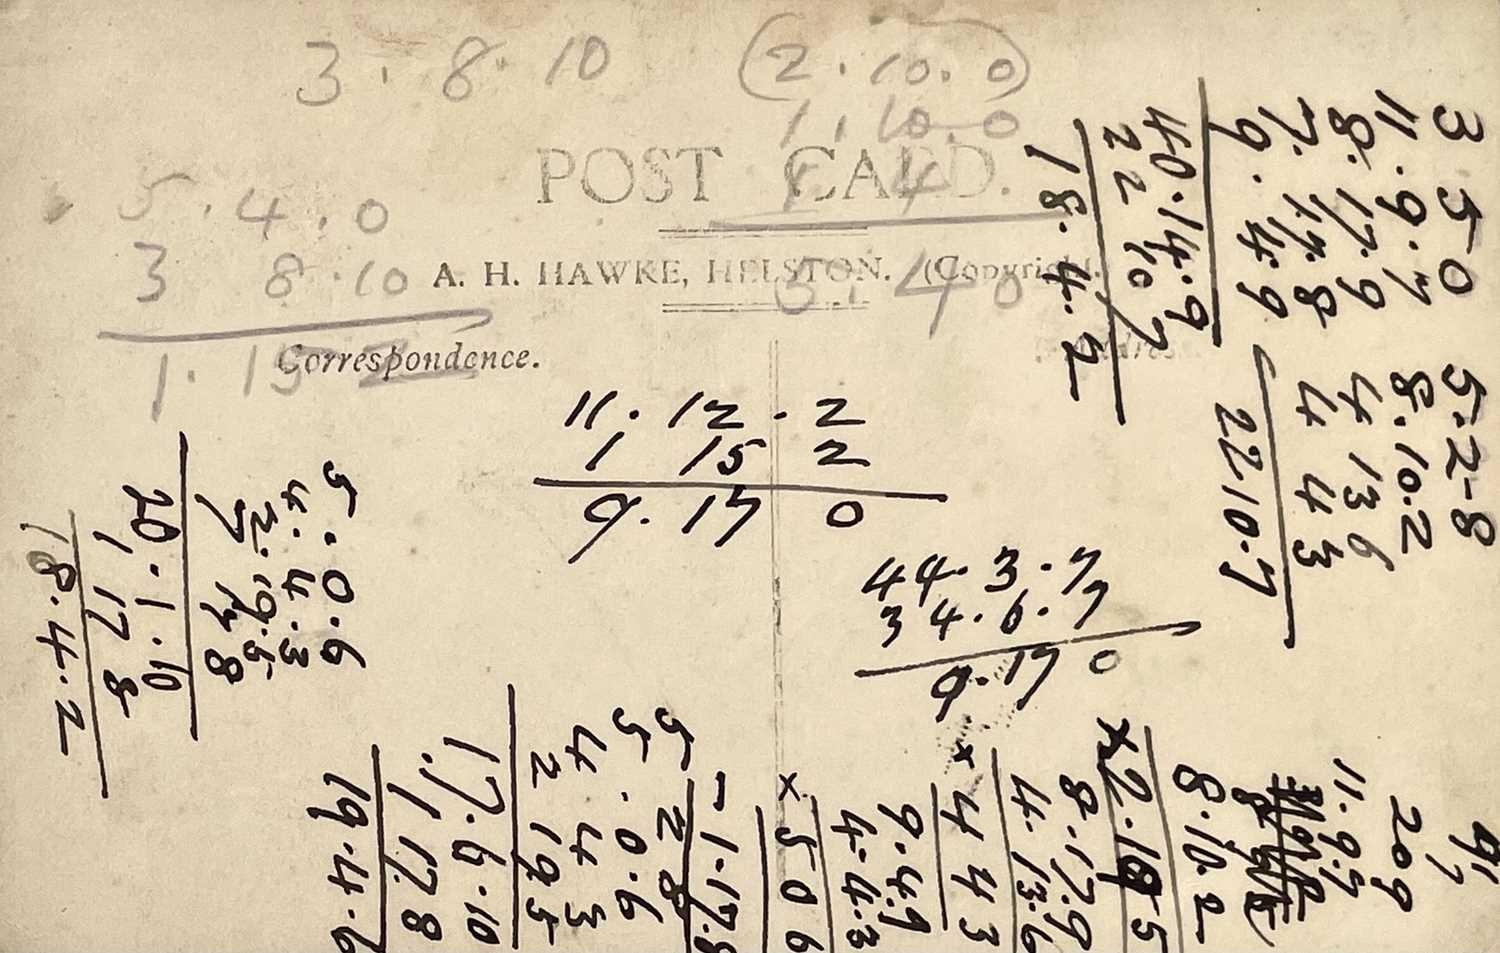 3 . 8 . 10
(2 . 10 . 0)
1 . 10 . 0
1 4
5 . 4 0
POST CARD.
A. H. HAWKE, HELSTON. (Copyright.)
Correspondence.
5 . 4 . 0
3 8 . 10
1 . 15 2
11 . 12 . 2
1 15 2
9 . 17 0
44 . 3 . 7
34 . 6 . 7
9 . 17 0
3 5 0
11 . 9 . 7
8 . 17 . 9
7 . 17 . 8
9 . 4 . 9
40 . 14 . 9
22 10 7
18 . 4 . 2
5 . 2 - 8
8 . 10 . 2
4 13 6
4 4 3
22 10 . 7
5 . 0 . 6
4 . 4 . 3
2 . 19 . 5
7 17 8
20 . 1 . 10
1 17 8
18 . 4 . 2
5 2 8
5 . 0 . 6
4 4 3
2 19 5
17 . 6 . 10
1 17 . 8
19 . 4 . 6
- 1 . 17 . 8
x 5 0 6
9 . 4 . 9
4 . 4 . 3
x 4 4 3
8 . 17 . 9
4 . 13 . 6
8 . 10 . 2
11 . 9 . 7
20 9